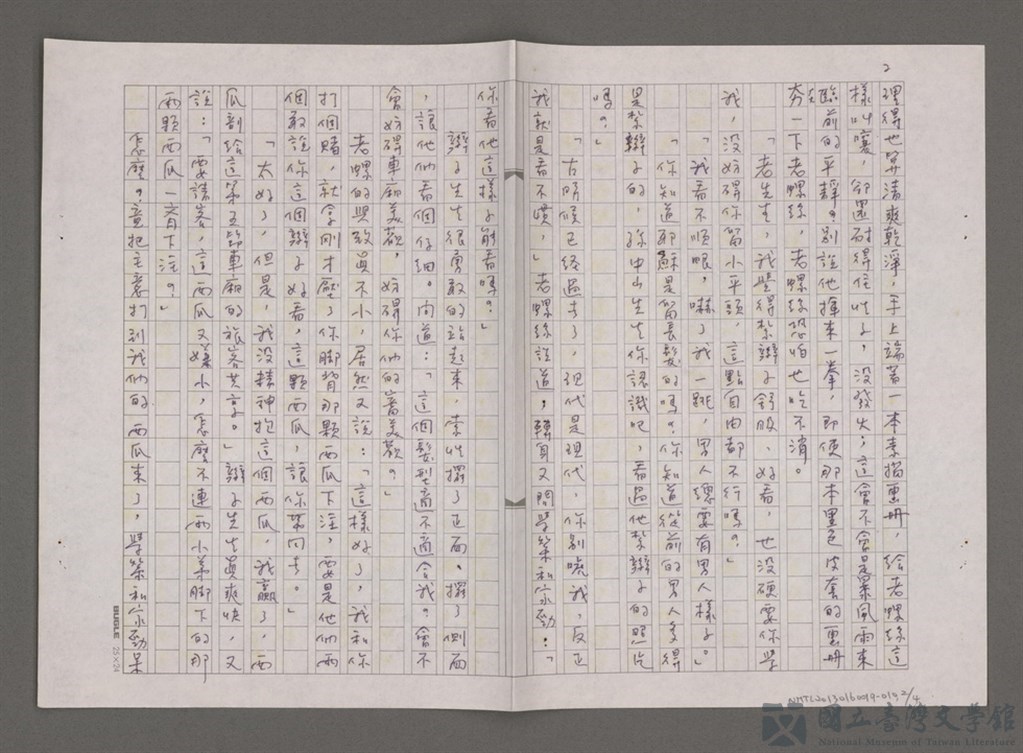 2
理得也算清爽乾淨，手上端著一本素描畫冊，給老螺絲這
樣叫嚷，卻還耐得住性子，沒發火；這會不會是暴風雨來
臨前的平靜？別說他揮來一拳，即使那本黑色皮套的畫冊
夯一下老螺絲，老螺絲恐怕也吃不消。
「老先生，我覺得紮辮子舒服、好看，也沒硬要你學
我，沒妨碍你留小平頭，這點自由都不行嗎？」
「我看不順眼，嚇了我一跳，男人總要有男人樣子。」
「你知道耶穌是留長髮的嗎？你知道從前的男人多得
是紮辮子的，孫中山先生你認識吧，看過他紮辮子的照片
嗎？」
「古時候已經過去了，現代是現代，你別嘵我，反正
我就是看不慣，」老螺絲說道，轉身又問學榮和宗勁：「
你看他這樣子能看嗎？」
辮子先生很勇敢的站起來，索性擺了正面、擺了側面
，讓他們看個仔細。問道：「這個髮型適不適合我？會不
會妨碍車廂美觀，妨碍你們的審美觀？」
老螺的興致真不小，居然又說：「這樣好了，我和你
打個賭，就拿剛才壓了你腳背那顆西瓜下注，要是他們兩
個敢說你這個辮子好看，這顆西瓜，讓你帶回去。」
「太好了，但是，我沒精神抱這個西瓜，我贏了，西
瓜剖給這第五節車廂的旅客共享。」辮子先生真爽快，又
說：「要請客，這西瓜又嫌小，怎麼不連兩小弟腳下的那
兩顆西瓜一齊下注？」
怎麼？竟把主意打到我們的西瓜來了，學榮和宗勁呆
BUGLE 25×24
NMTL20130160099-0152/4
國立臺灣文學館
National Museum of Taiwan Literature